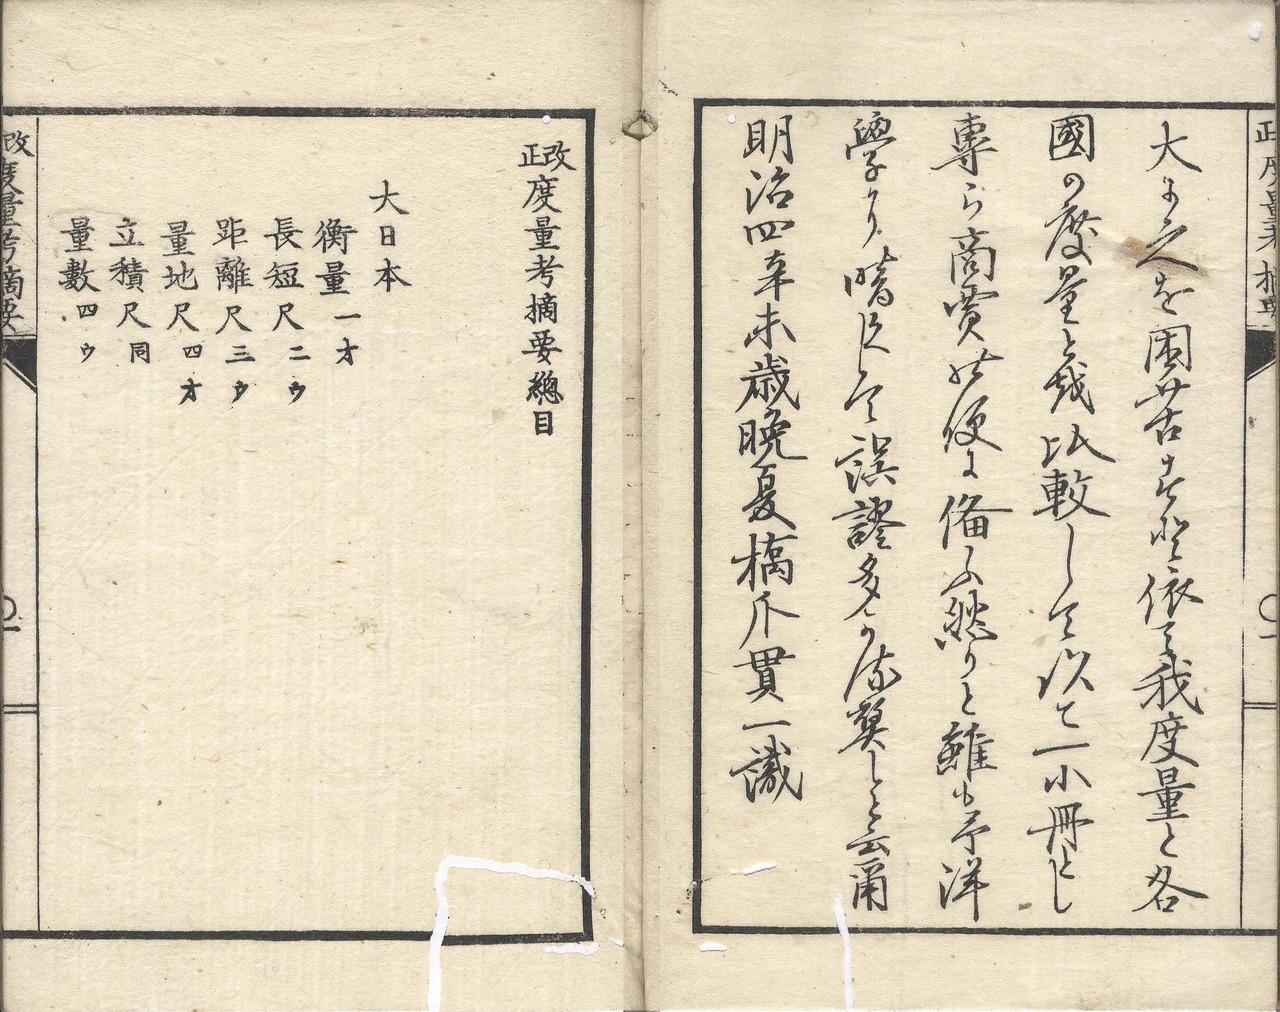 大に之を困苦す是に依て我度量と各
國の度量とを比較し以て一小冊とし
專ら商賈の便に備ふ然りと雖も予洋
學に暗くして誤謬多からん冀くと云爾
明治四辛未歳晩夏橋爪貫一識
改正度量考摘要總目
大日本
衡量一オ
長短尺二ウ
距離尺三ウ
量地尺四オ
立積尺同
量數四ウ
改正度量考摘要